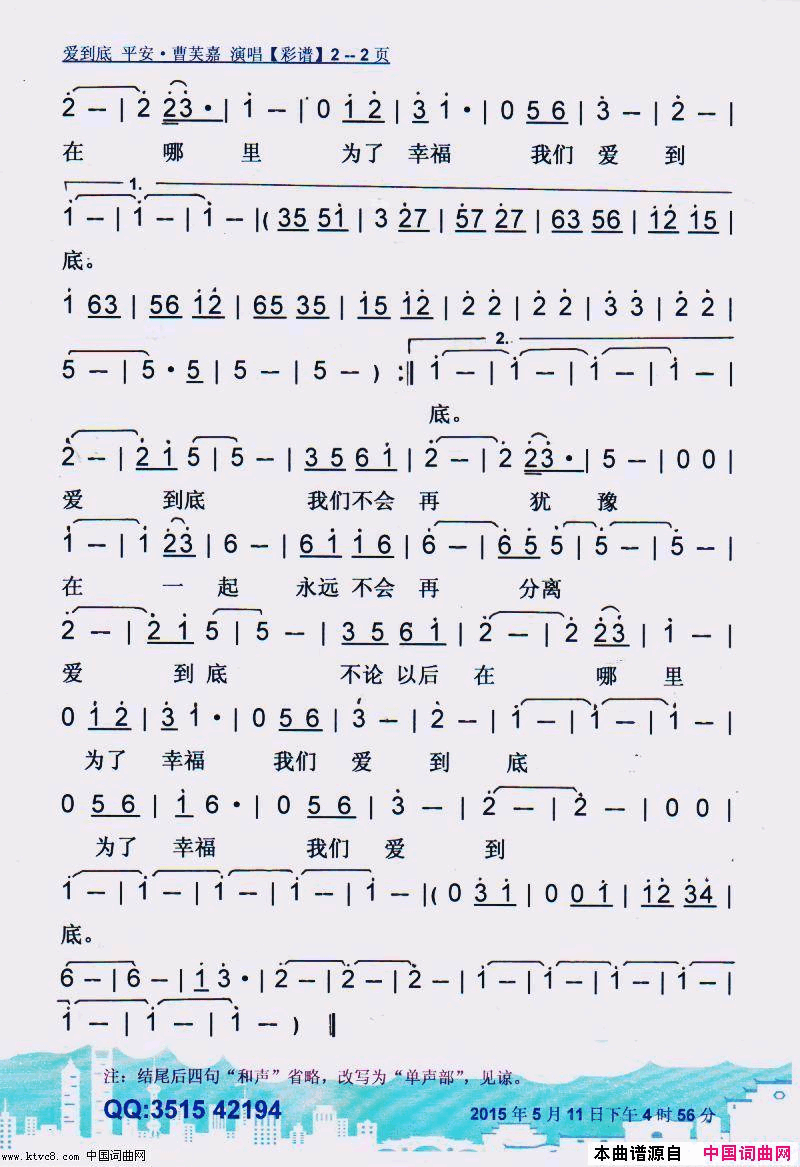 爱到底 平安·曹芙嘉 演唱【彩谱】2 -- 2 页
2 – | 2 23· | 1 – | 0 12 | 31· | 0 56 | 3 – | 2 – |
在 哪 里 为了 幸福 我们 爱 到
1.
1 – | 1 – | 1 – |( 35 51 | 3 27 | 57 27 | 63 56 | 12 15 |
底。
1 63 | 56 12 | 65 35 | 15 12 | 2 2 | 2 2 | 3 3 | 2 2 |
2.
5 – | 5·5 | 5 – | 5 – ) :‖ 1 – | 1 – | 1 – | 1 – |
底。
2 – | 21 5 | 5 – | 35 61 | 2 – | 2 23· | 5 – | 0 0 |
爱 到底 我们不会 再 犹 豫
1 – | 1 23 | 6 – | 61 16 | 6 – | 65 5 | 5 – | 5 – |
在 一 起 永远 不会 再 分离
2 – | 21 5 | 5 – | 35 61 | 2 – | 2 23 | 1 – |
爱 到 底 不论 以后 在 哪 里
0 12 | 31· | 0 56 | 3 – | 2 – | 1 – | 1 – | 1 – |
为了 幸福 我们 爱 到 底
0 56 | 1 6· | 0 56 | 3 – | 2 – | 2 – | 0 0 |
为了 幸福 我们 爱 到
1 – | 1 – | 1 – | 1 – | 1 – |( 0 31 | 0 01 | 12 34 |
底。
6 – | 6 – | 1 3· | 2 – | 2 – | 2 – | 1 – | 1 – | 1 – |
1 – | 1 – | 1 – ) ‖
注：结尾后四句“和声”省略，改写为“单声部”，见谅。
QQ:3515 42194
2015 年 5 月 11 日下午 4 时 56 分
www.ktvc8.com 中国词曲网
本曲谱源自 中国词曲网